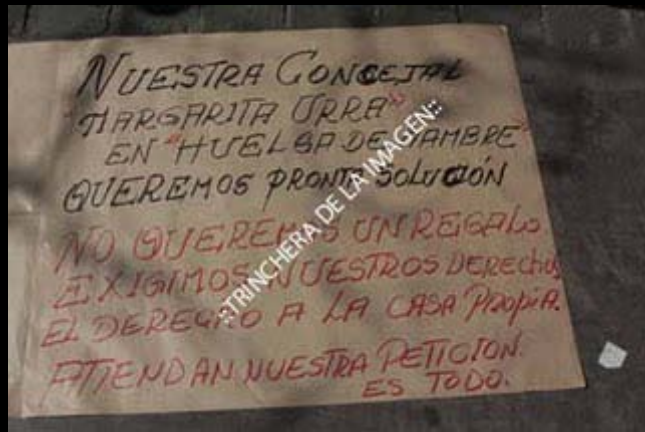 NUESTRA CONCEJAL
"MARGARITA URRA"
EN "HUELGA DE HAMBRE"
QUEREMOS PRONTA SOLUCIÓN
NO QUEREMOS UN REGALO
EXIGIMOS NUESTROS DERECHOS
EL DERECHO A LA CASA PROPIA.
ATIENDAN NUESTRA PETICION.
ES TODO.
::TRINCHERA DE LA IMAGEN::